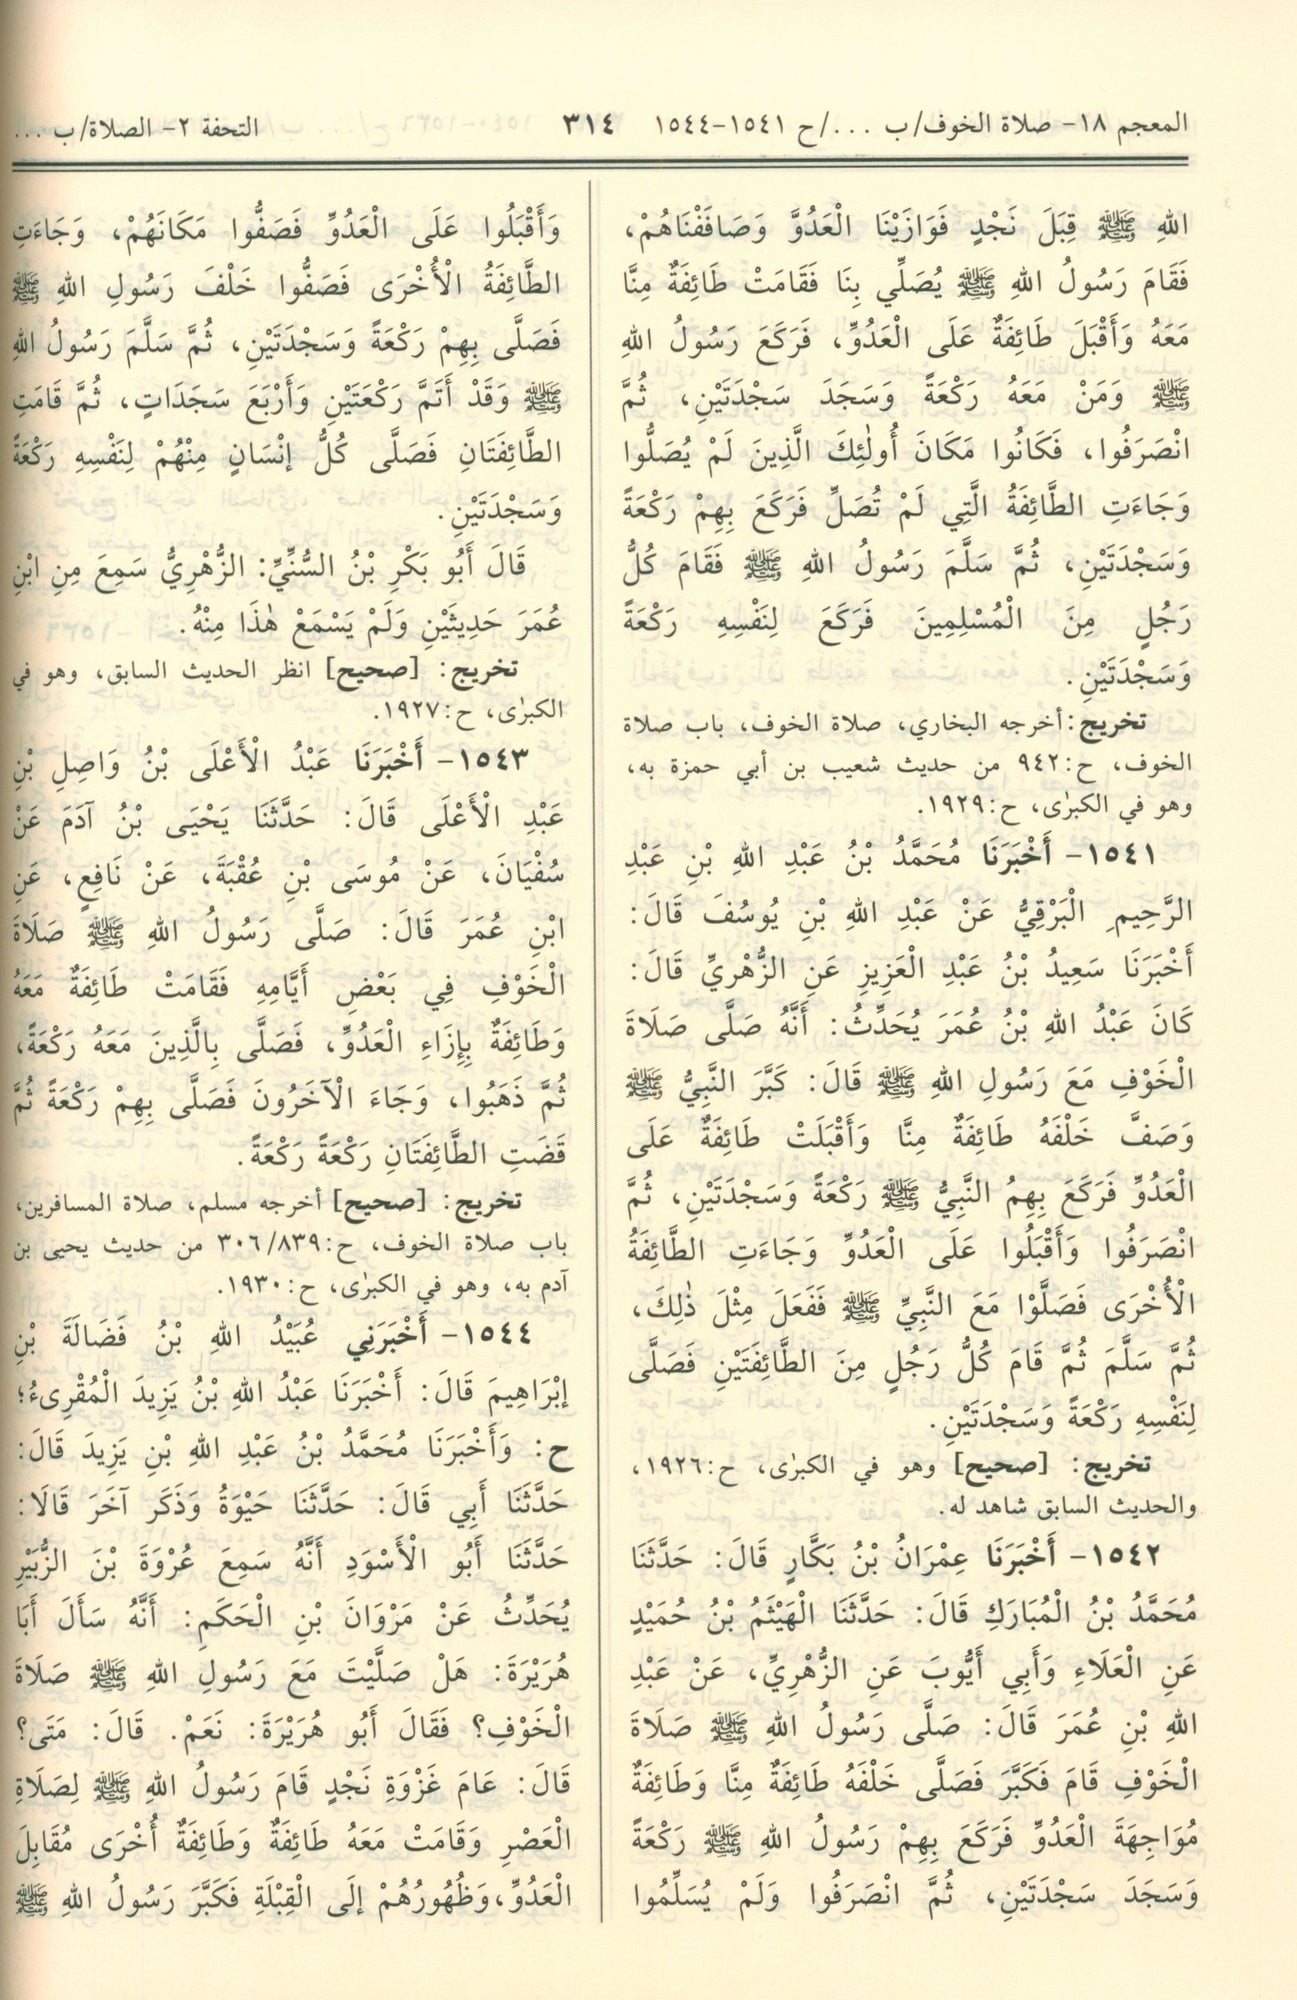 المعجم ١٨- صلاة الخوف/ ب .../ح ١٥٤١-١٥٤٤ ٣١٤ التحفة ٢- الصلاة/ ب ...
اللهِ ﷺ قِبَلَ نَجْدٍ فَوَازَيْنَا الْعَدُوَّ وَصَافَفْنَاهُمْ،
فَقَامَ رَسُولُ اللهِ ﷺ يُصَلِّي بِنَا فَقَامَتْ طَائِفَةٌ مِنَّا
مَعَهُ وَأَقْبَلَ طَائِفَةٌ عَلَى الْعَدُوِّ، فَرَكَعَ رَسُولُ اللهِ
ﷺ وَمَنْ مَعَهُ رَكْعَةً وَسَجَدَ سَجْدَتَيْنِ، ثُمَّ
انْصَرَفُوا، فَكَانُوا مَكَانَ أُولٰئِكَ الَّذِينَ لَمْ يُصَلُّوا
وَجَاءَتِ الطَّائِفَةُ الَّتِي لَمْ تُصَلِّ فَرَكَعَ بِهِمْ رَكْعَةً
وَسَجْدَتَيْنِ، ثُمَّ سَلَّمَ رَسُولُ اللهِ ﷺ فَقَامَ كُلُّ
رَجُلٍ مِنَ الْمُسْلِمِينَ فَرَكَعَ لِنَفْسِهِ رَكْعَةً
وَسَجْدَتَيْنِ.
تخريج: أخرجه البخاري، صلاة الخوف، باب صلاة
الخوف، ح:٩٤٢ من حديث شعيب بن أبي حمزة به،
وهو في الكبرٰى، ح:١٩٢٩.
١٥٤١- أَخْبَرَنَا مُحَمَّدُ بْنُ عَبْدِ اللهِ بْنِ عَبْدِ
الرَّحِيمِ الْبَرْقِيُّ عَنْ عَبْدِ اللهِ بْنِ يُوسُفَ قَالَ:
أَخْبَرَنَا سَعِيدُ بْنُ عَبْدِ الْعَزِيزِ عَنِ الزُّهْرِيِّ قَالَ:
كَانَ عَبْدُ اللهِ بْنُ عُمَرَ يُحَدِّثُ: أَنَّهُ صَلَّى صَلَاةَ
الْخَوْفِ مَعَ رَسُولِ اللهِ ﷺ قَالَ: كَبَّرَ النَّبِيُّ ﷺ
وَصَفَّ خَلْفَهُ طَائِفَةٌ مِنَّا وَأَقْبَلَتْ طَائِفَةٌ عَلَى
الْعَدُوِّ فَرَكَعَ بِهِمُ النَّبِيُّ ﷺ رَكْعَةً وَسَجْدَتَيْنِ، ثُمَّ
انْصَرَفُوا وَأَقْبَلُوا عَلَى الْعَدُوِّ وَجَاءَتِ الطَّائِفَةُ
الْأُخْرَى فَصَلَّوْا مَعَ النَّبِيِّ ﷺ فَفَعَلَ مِثْلَ ذٰلِكَ،
ثُمَّ سَلَّمَ ثُمَّ قَامَ كُلُّ رَجُلٍ مِنَ الطَّائِفَتَيْنِ فَصَلَّى
لِنَفْسِهِ رَكْعَةً وَسَجْدَتَيْنِ.
تخريج: [صحيح] وهو في الكبرٰى، ح:١٩٢٦،
والحديث السابق شاهد له.
١٥٤٢- أَخْبَرَنَا عِمْرَانُ بْنُ بَكَّارٍ قَالَ: حَدَّثَنَا
مُحَمَّدُ بْنُ الْمُبَارَكِ قَالَ: حَدَّثَنَا الْهَيْثَمُ بْنُ حُمَيْدٍ
عَنِ الْعَلَاءِ وَأَبِي أَيُّوبَ عَنِ الزُّهْرِيِّ، عَنْ عَبْدِ
اللهِ بْنِ عُمَرَ قَالَ: صَلَّى رَسُولُ اللهِ ﷺ صَلَاةَ
الْخَوْفِ قَامَ فَكَبَّرَ فَصَلَّى خَلْفَهُ طَائِفَةٌ مِنَّا وَطَائِفَةٌ
مُوَاجِهَةَ الْعَدُوِّ فَرَكَعَ بِهِمْ رَسُولُ اللهِ ﷺ رَكْعَةً
وَسَجَدَ سَجْدَتَيْنِ، ثُمَّ انْصَرَفُوا وَلَمْ يُسَلِّمُوا
وَأَقْبَلُوا عَلَى الْعَدُوِّ فَصَفُّوا مَكَانَهُمْ، وَجَاءَتِ
الطَّائِفَةُ الْأُخْرَى فَصَفُّوا خَلْفَ رَسُولِ اللهِ ﷺ
فَصَلَّى بِهِمْ رَكْعَةً وَسَجْدَتَيْنِ، ثُمَّ سَلَّمَ رَسُولُ اللهِ
ﷺ وَقَدْ أَتَمَّ رَكْعَتَيْنِ وَأَرْبَعَ سَجَدَاتٍ، ثُمَّ قَامَتِ
الطَّائِفَتَانِ فَصَلَّى كُلُّ إِنْسَانٍ مِنْهُمْ لِنَفْسِهِ رَكْعَةً
وَسَجْدَتَيْنِ.
قَالَ أَبُو بَكْرِ بْنُ السُّنِّيِّ: الزُّهْرِيُّ سَمِعَ مِنِ ابْنِ
عُمَرَ حَدِيثَيْنِ وَلَمْ يَسْمَعْ هٰذَا مِنْهُ.
تخريج: [صحيح] انظر الحديث السابق، وهو في
الكبرٰى، ح:١٩٢٧.
١٥٤٣- أَخْبَرَنَا عَبْدُ الْأَعْلَى بْنُ وَاصِلِ بْنِ
عَبْدِ الْأَعْلَى قَالَ: حَدَّثَنَا يَحْيَى بْنُ آدَمَ عَنْ
سُفْيَانَ، عَنْ مُوسَى بْنِ عُقْبَةَ، عَنْ نَافِعٍ، عَنِ
ابْنِ عُمَرَ قَالَ: صَلَّى رَسُولُ اللهِ ﷺ صَلَاةَ
الْخَوْفِ فِي بَعْضِ أَيَّامِهِ فَقَامَتْ طَائِفَةٌ مَعَهُ
وَطَائِفَةٌ بِإِزَاءِ الْعَدُوِّ، فَصَلَّى بِالَّذِينَ مَعَهُ رَكْعَةً،
ثُمَّ ذَهَبُوا، وَجَاءَ الْآخَرُونَ فَصَلَّى بِهِمْ رَكْعَةً ثُمَّ
قَضَتِ الطَّائِفَتَانِ رَكْعَةً رَكْعَةً.
تخريج: [صحيح] أخرجه مسلم، صلاة المسافرين،
باب صلاة الخوف، ح:٣٠٦/٨٣٩ من حديث يحيى بن
آدم به، وهو في الكبرٰى، ح:١٩٣٠.
١٥٤٤- أَخْبَرَنِي عُبَيْدُ اللهِ بْنُ فَضَالَةَ بْنِ
إِبْرَاهِيمَ قَالَ: أَخْبَرَنَا عَبْدُ اللهِ بْنُ يَزِيدَ الْمُقْرِىءُ؛
ح: وَأَخْبَرَنَا مُحَمَّدُ بْنُ عَبْدِ اللهِ بْنِ يَزِيدَ قَالَ:
حَدَّثَنَا أَبِي قَالَ: حَدَّثَنَا حَيْوَةُ وَذَكَر آخَرَ قَالَا:
حَدَّثَنَا أَبُو الْأَسْوَدِ أَنَّهُ سَمِعَ عُرْوَةَ بْنَ الزُّبَيْرِ
يُحَدِّثُ عَنْ مَرْوَانَ بْنِ الْحَكَمِ: أَنَّهُ سَأَلَ أَبَا
هُرَيْرَةَ: هَلْ صَلَّيْتَ مَعَ رَسُولِ اللهِ ﷺ صَلَاةَ
الْخَوْفِ؟ فَقَالَ أَبُو هُرَيْرَةَ: نَعَمْ. قَالَ: مَتَى؟
قَالَ: عَامَ غَزْوَةِ نَجْدٍ قَامَ رَسُولُ اللهِ ﷺ لِصَلَاةِ
الْعَصْرِ وَقَامَتْ مَعَهُ طَائِفَةٌ وَطَائِفَةٌ أُخْرَى مُقَابِلَ
الْعَدُوِّ، وَظُهُورُهُمْ إِلَى الْقِبْلَةِ فَكَبَّرَ رَسُولُ اللهِ ﷺ